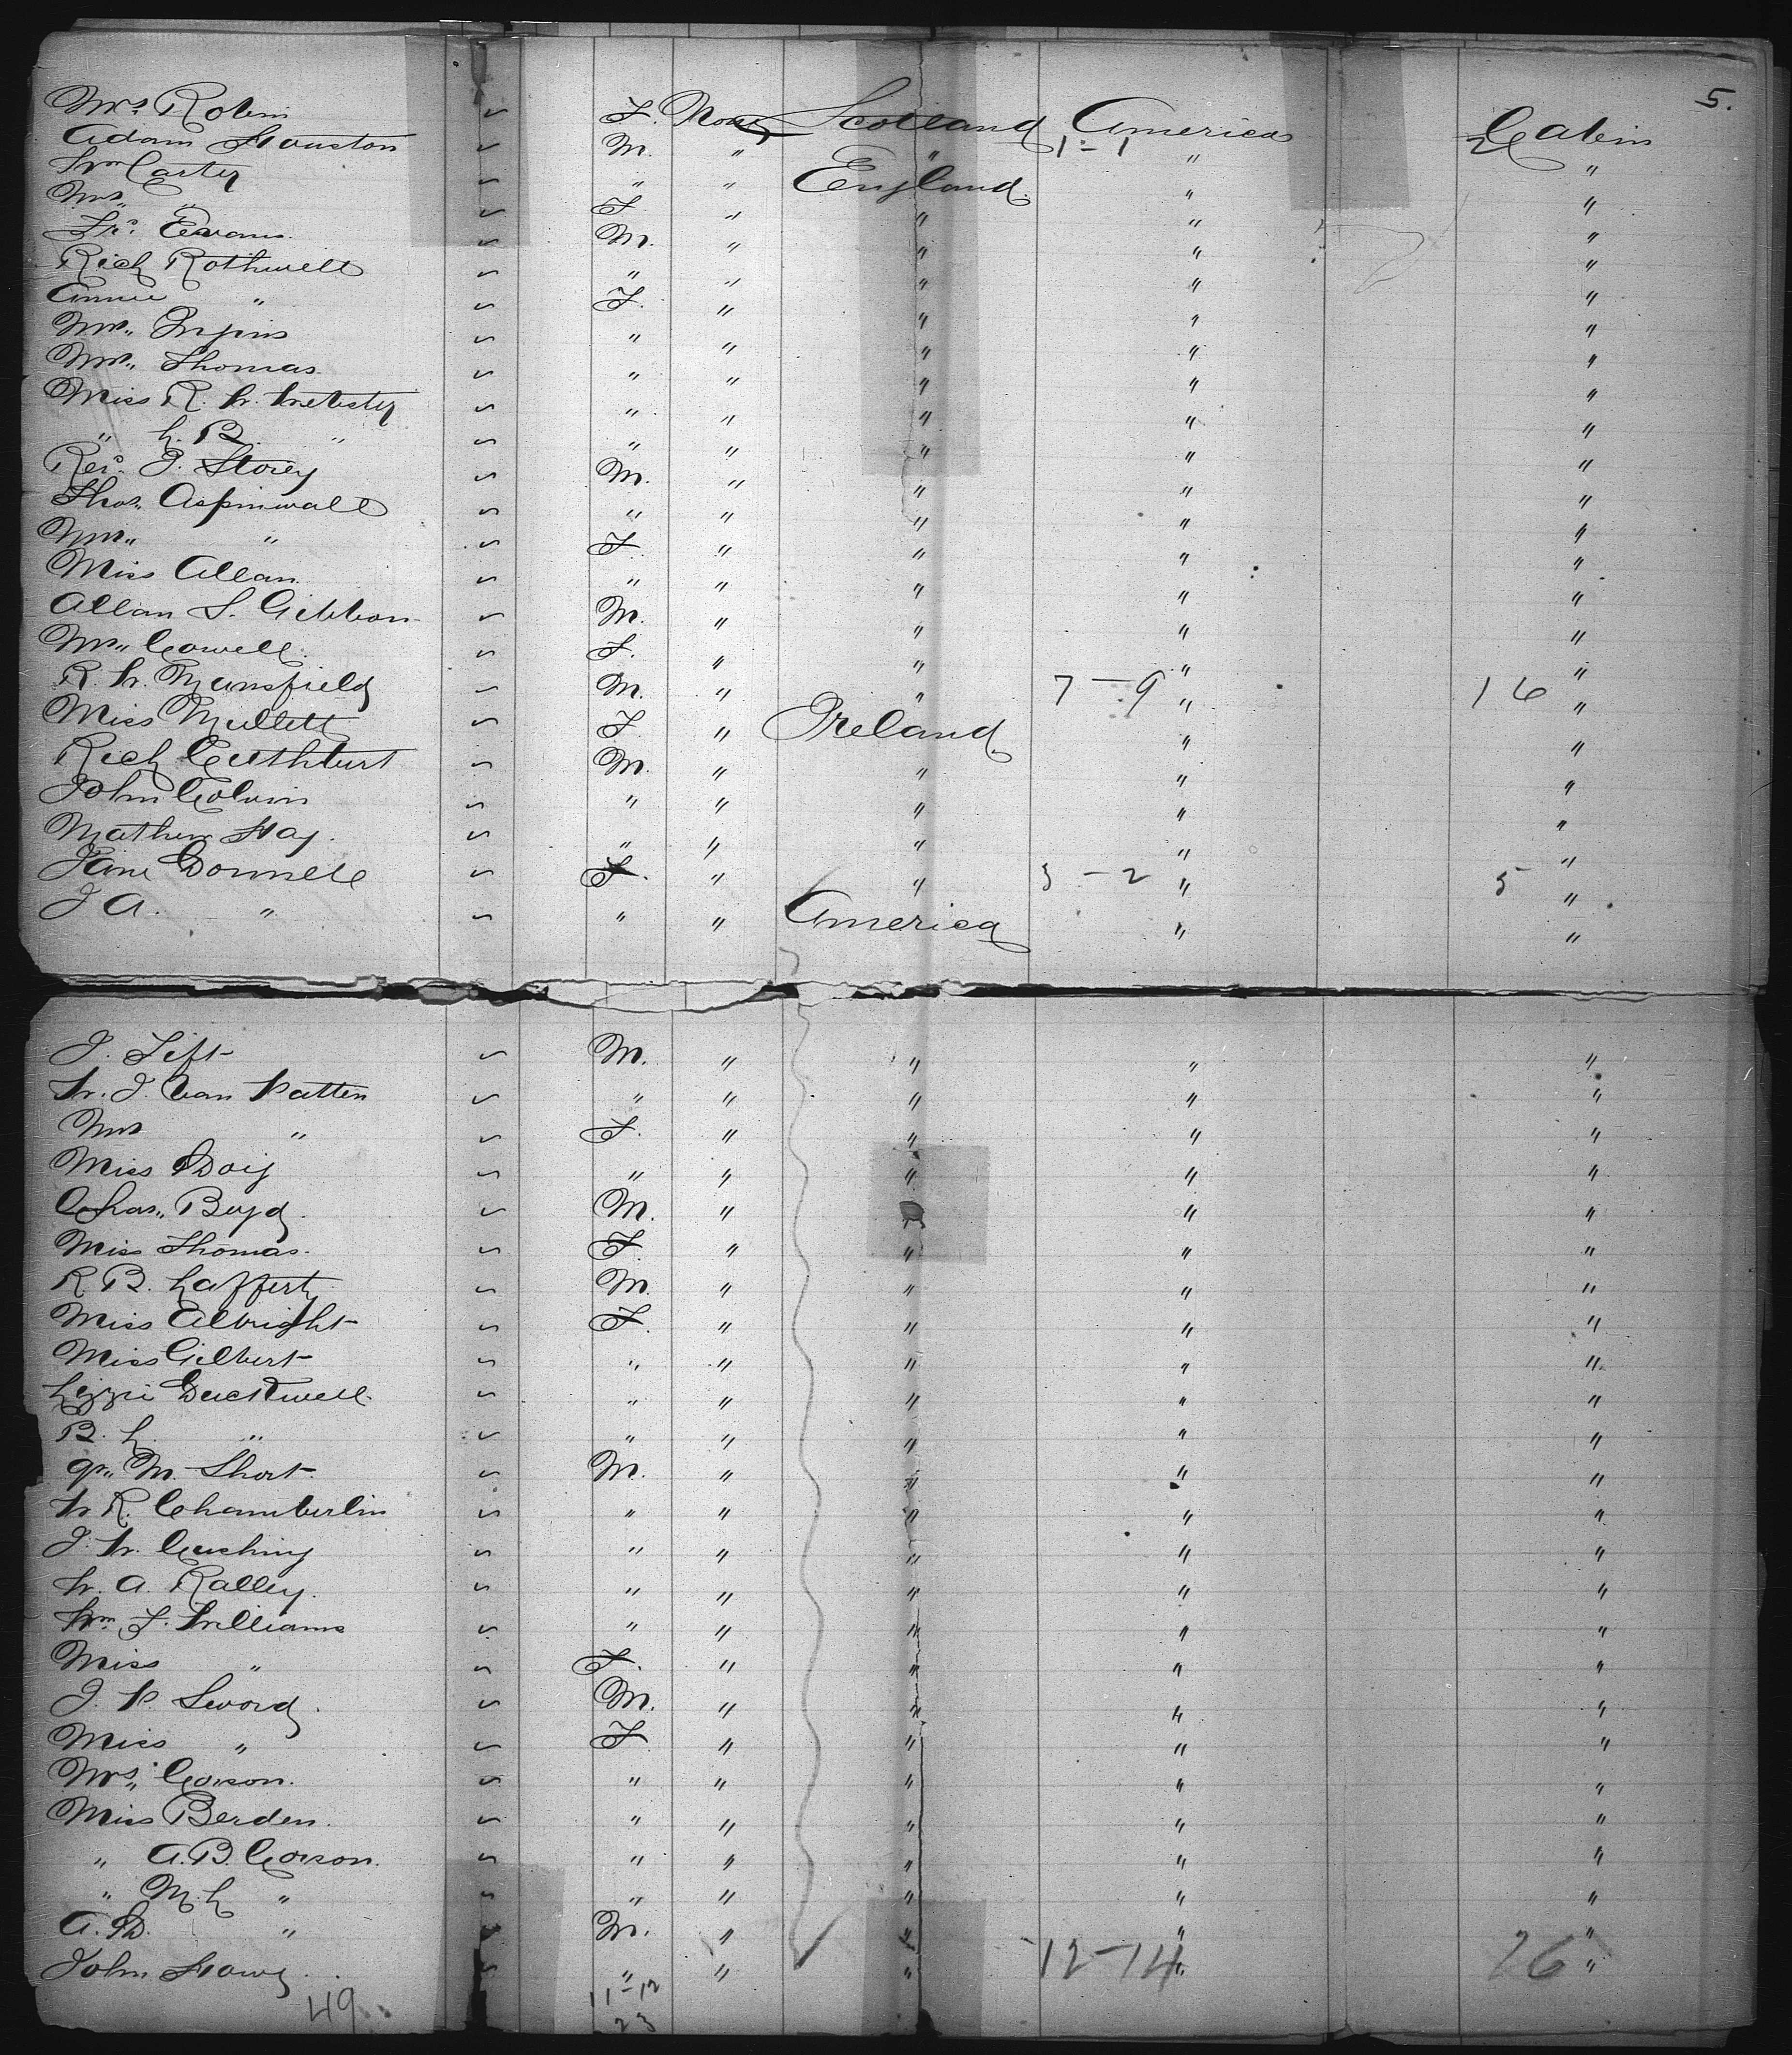 5.
Mrs. Robin " F. None Scotland America Cabin
Adam Houston " M. " " 1-1 " 2 "
Wm Carter " " " England " "
Mrs. " " F. " " " "
Fr: Evans. " M. " " " "
Rich Rothwell " " " " " "
Annie " " F. " " " "
Mrs. " " " " " "
Mrs. Thomas. " " " " " "
Miss R. W. Webster " " " " " "
" L. B. " " " " " " "
Rev. J. Storey " M. " " " "
Thos. Aspinwall " " " " " "
Mrs. " " F. " " " "
Miss Allan. " " " " " "
Allan S. Gibbon. " M. " " " "
Mrs. Cowell. " F. " " " "
R. W. Mansfield " M. " " 7-9 " 16 "
Miss Mullett " F. " Ireland " "
Rich Cuthburt " M. " " " "
John Colvin " " " " " "
Mathew Hay. " " " " " "
Jane Donnell " F. " " 3-2 " 5 "
J A. " " " " America " "
J. Tift " M. " " " "
W. J. Van Patten " " " " " "
Mrs " " F. " " " "
Miss Doig " " " " " "
Chas. Boyd. " M. " " " "
Miss Thomas. " F. " " " "
R. B. Lafferty " M. " " " "
Miss Albright " F. " " " "
Miss Gilbert " " " " " "
Lizzie Duckwell. " " " " " "
B. L. " " " " " " "
M. Short. " M. " " " "
W R. Chamberlin " " " " " "
J. W. Cushing " " " " " "
W. A. Ralley. " " " " " "
Wm. F. Williams " " " " " "
Miss " " F. " " " "
J. P. Sword. " M. " " " "
Miss " " F. " " " "
Mrs. Corson. " " " " " "
Miss Berden. " " " " " "
" A. B. Corson. " " " " " "
" M. L. " " " " " " "
A. D. " " M. " " " "
John Howe. " " " " 12-14 " 26 "
49 11-12
23